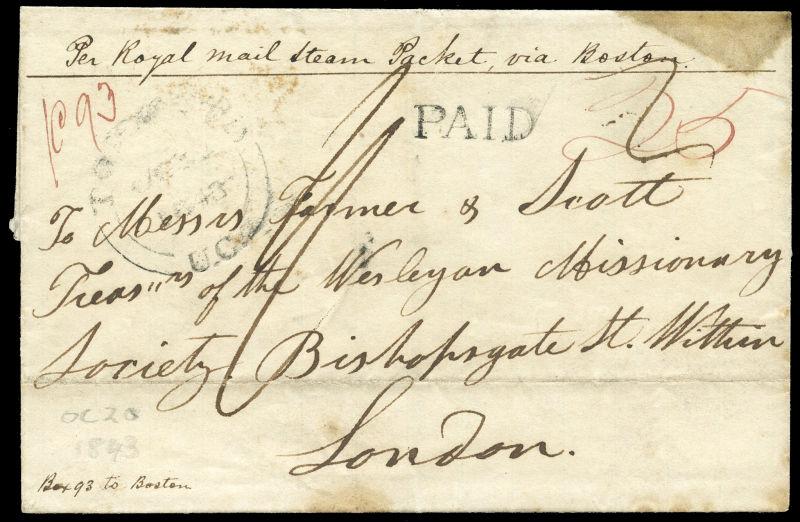 Per Royal mail Steam Packet, via Boston.
93
PAID
25
To Messrs Farmer & Scott
Treas"rs of the Wesleyan Missionary
Society Bishopsgate St. Within
London.
U.C.
OC 20
1843
Box 93 to Boston